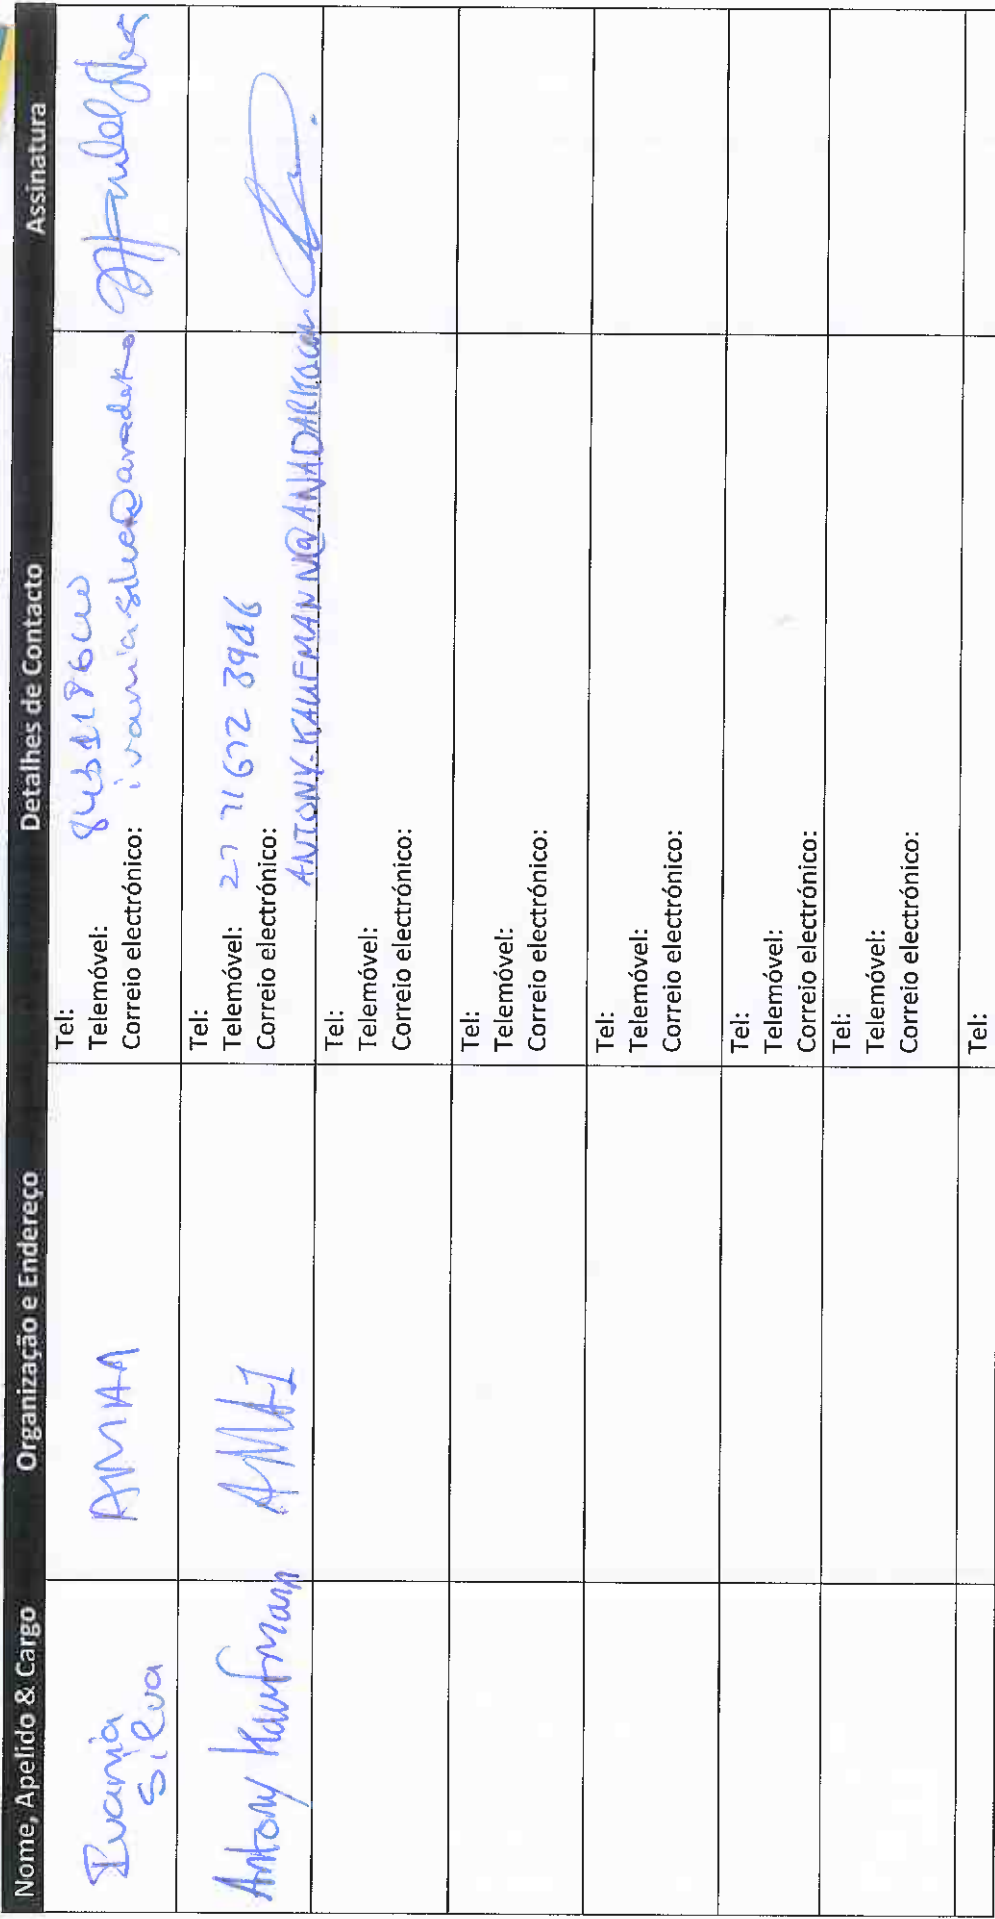 Nome, Apelido & Cargo Organização e Endereço Detalhes de Contacto Assinatura
Ivania
Silva
AMAA
Tel:
Telemóvel:
Correio electrónico:
Antony Kaufmann
AMA1
Tel:
Telemóvel: 27 71 672 3946
Correio electrónico:
ANTONY.KAUFMANN@ANADARKO.COM
Tel:
Telemóvel:
Correio electrónico:
Tel:
Telemóvel:
Correio electrónico:
Tel:
Telemóvel:
Correio electrónico:
Tel:
Telemóvel:
Correio electrónico:
Tel:
Telemóvel:
Correio electrónico:
Tel: